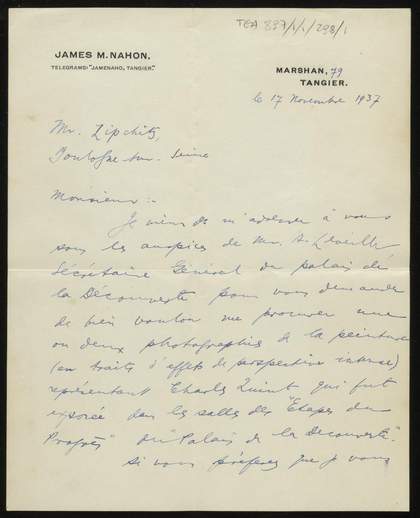 TGA 897/1/1/298/1
JAMES M. NAHON.
TELEGRAMS: "JAMENAHO, TANGIER."
MARSHAN, 79
TANGIER.
le 17 Novembre 1937
Mr. Lipchitz,
Boulogne sur Seine
Monsieur :-
Je viens de m'adresser à vous
sous les auspices de Mr. A. Léveillé
Sécrétaire Général du palais de
la Découverte pour vous demander
de bien vouloir me procurer une
ou deux photographies de la peinture
(en traits d'effets de perspective intense)
représentant Charles Quint qui fut
exposée dans les salles des "Etapes du
Progrès" du "Palais de la Découverte".
Si vous préférez que je vous